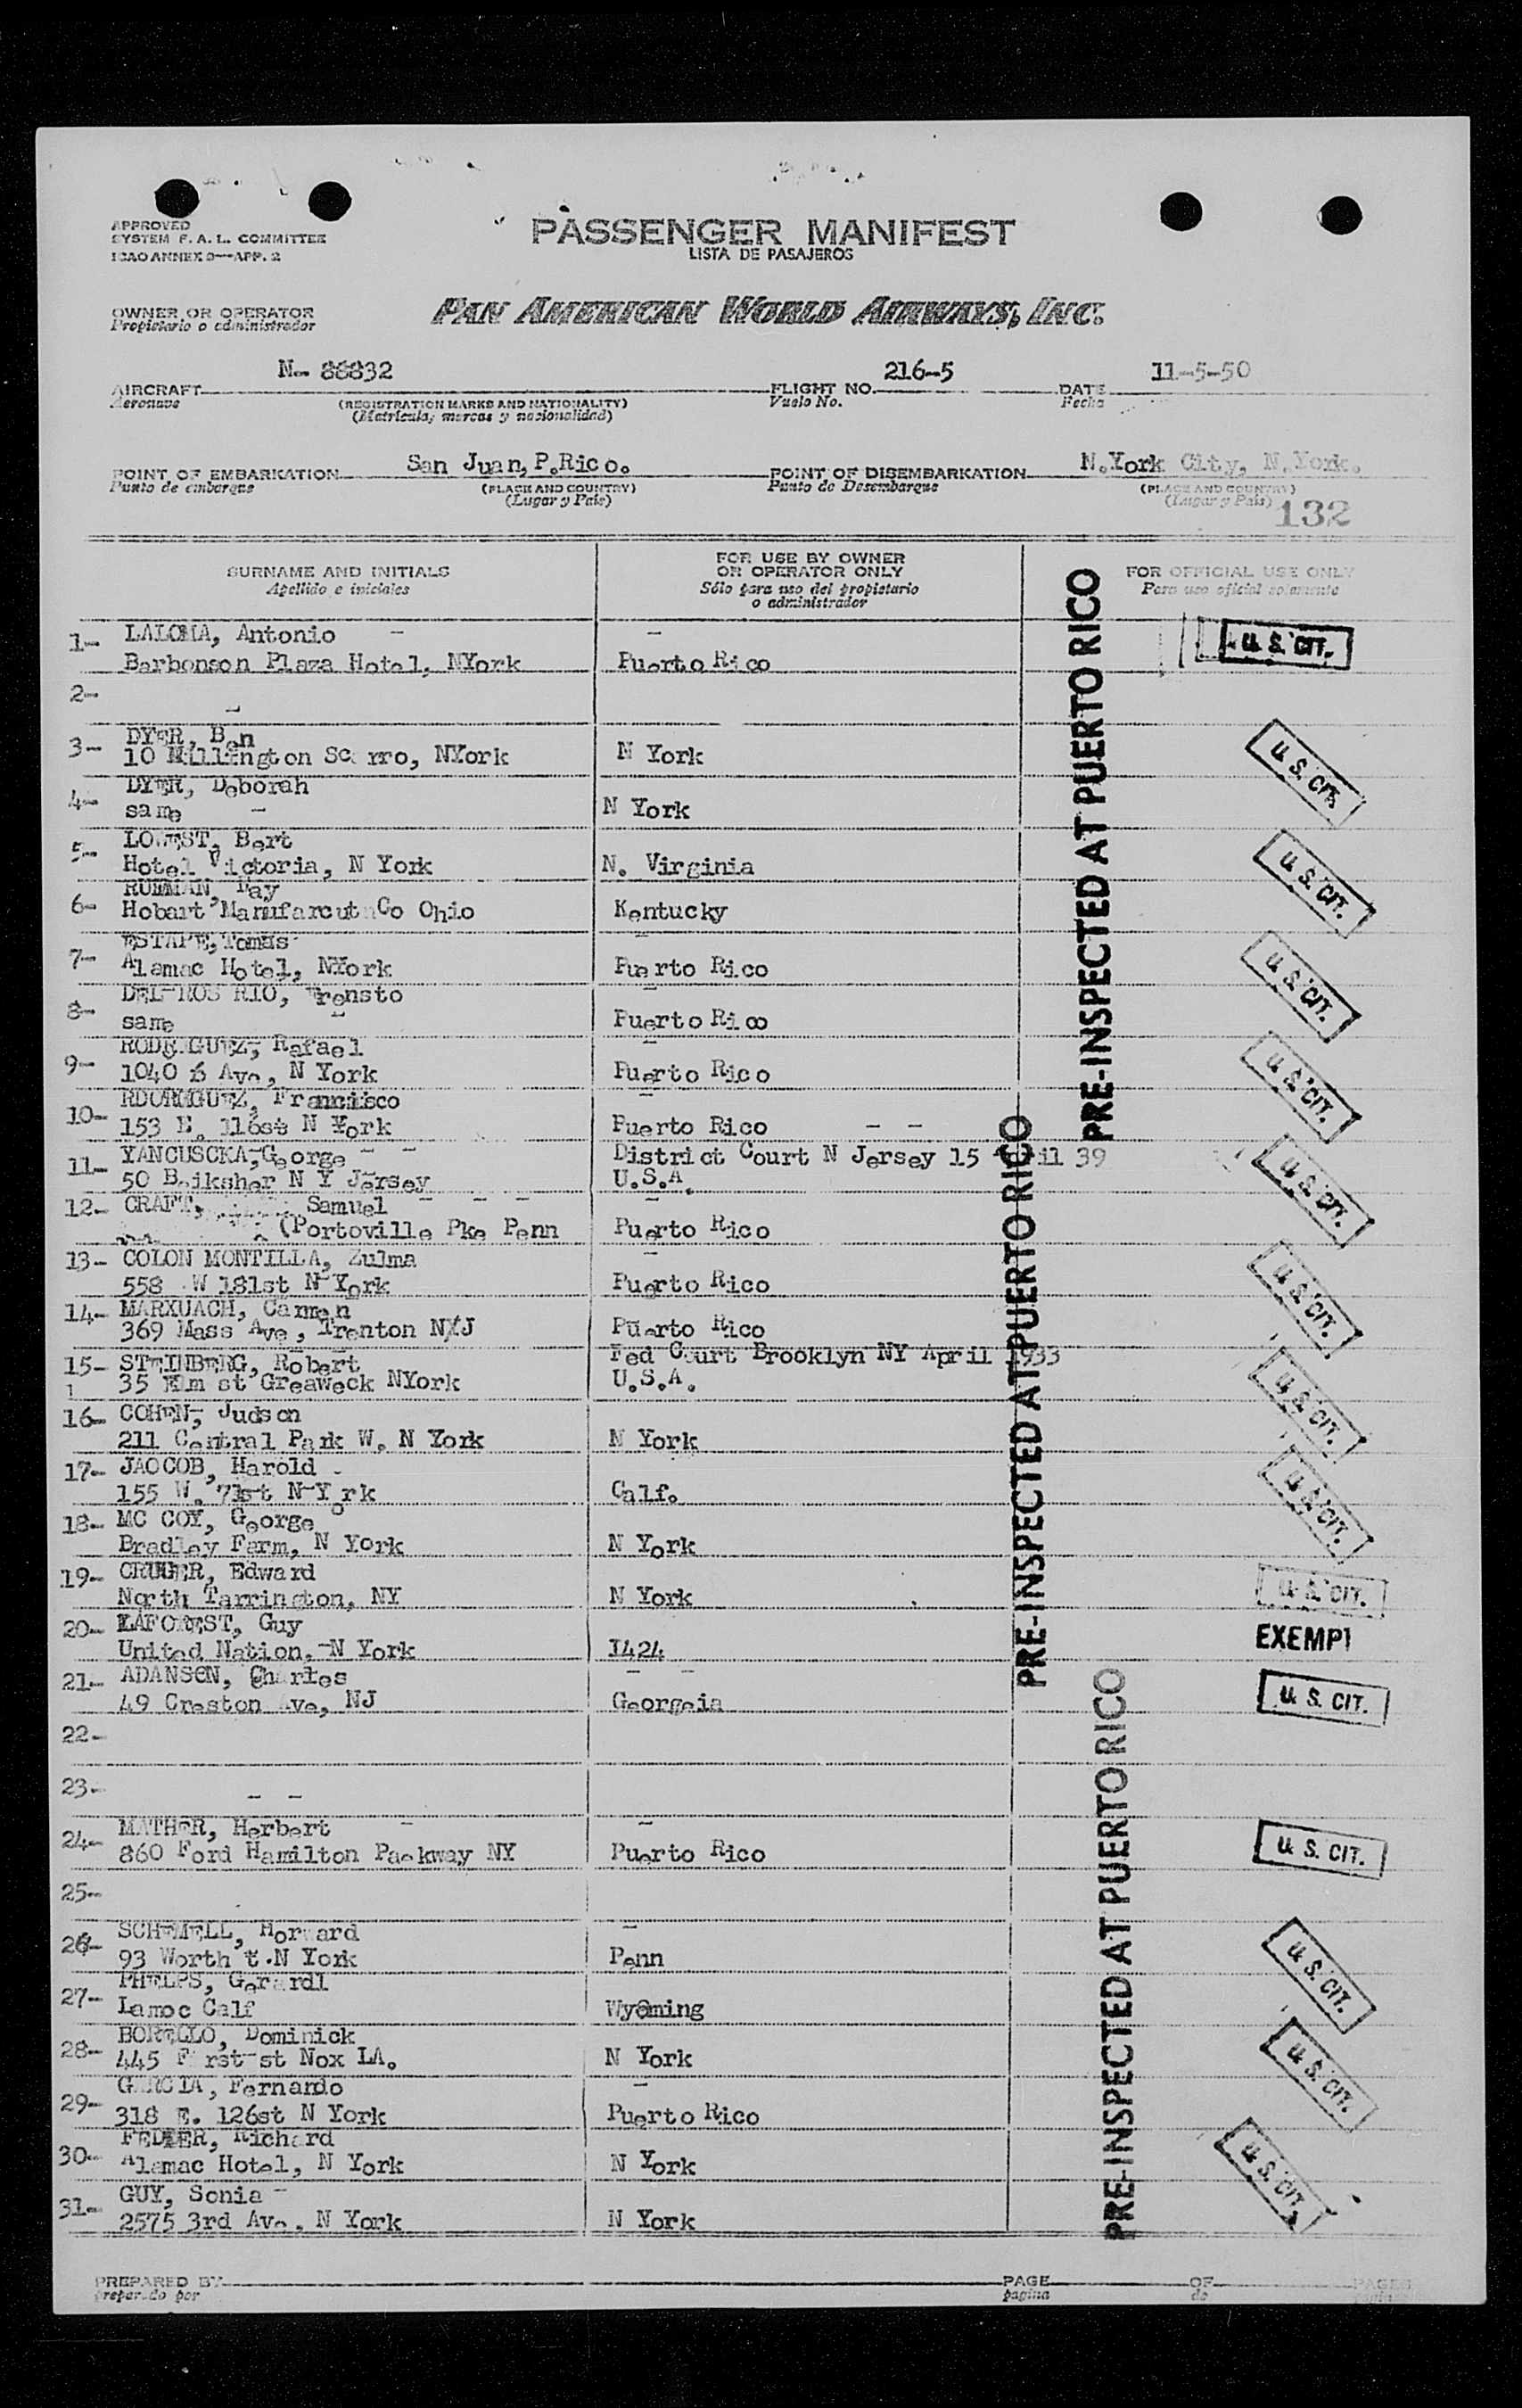 APPROVED
SYSTEM F. A. L. COMMITTEE
ICAO ANNEX 9—APP. 2
PASSENGER MANIFEST
LISTA DE PASAJEROS
OWNER OR OPERATOR
Propietario o administrador
PAN AMERICAN WORLD AIRWAYS, INC.
N- 88832 216-5 11-5-50
AIRCRAFT FLIGHT NO. DATE
Aeronave (REGISTRATION MARKS AND NATIONALITY) Vuelo No. Fecha
(Matricula, marcas y nacionalidad)
San Juan, P.Rico. N.York City, N.York.
POINT OF EMBARKATION POINT OF DISEMBARKATION
Punto de embarque (PLACE AND COUNTRY) Punto de Desembarque (PLACE AND COUNTRY)
(Lugar y Pais) (Lugar y Pais) 132
SURNAME AND INITIALS FOR USE BY OWNER OR OPERATOR ONLY FOR OFFICIAL USE ONLY
Apellido e iniciales Sólo para uso del propietario o administrador Para uso oficial solamente
1- LALOMA, Antonio U. S. CIT.
Barbonson Plaza Hotel, NYork Puerto Rico
2-
3- DYER, Ben
10 Millington NYork N York U. S. CIT.
4- DYER, Deborah
same N York
5- Bert
Hotel Victoria, N York N. Virginia U. S. CIT.
6- Fay
Hobart Co Ohio Kentucky
7- ESTAPE, Tomas
Alamac Hotel, NYork Puerto Rico U. S. CIT.
8- DEL
same Puerto Rico
9- RODRIGUEZ, Rafael
1040 6 Ave, N York Puerto Rico U. S. CIT.
10- Francisco
153 E. 116st N York Puerto Rico
11- YANCUSCKA, George District Court N Jersey 15 39
50 N Y Jersey U.S.A. U. S. CIT.
12- CRAFT, Samuel
(Portoville Pke Penn Puerto Rico
13- COLON MONTILLA, Zulma
558 W 181st N York Puerto Rico U. S. CIT.
14- MARXUACH, Carmen
369 Mass Ave, Trenton NJ Puerto Rico
15- STEINBERG, Robert Fed Court Brooklyn NY April 1933
35 Elm st Greaweck NYork U.S.A. U. S. CIT.
16- COHEN, Judson
211 Central Park W. N York N York
17- JAOCOB, Harold
155 W. 71st N York Calf. U. S. CIT.
18- MC COY, George
Bradley Farm, N York N York
19- CRUGER, Edward
North Tarrington, NY N York U. S. CIT.
20- LAFOREST, Guy
United Nation, N York I424 EXEMPT
21- ADANSON, Charles
49 Creston Ave, NJ Georgeia U. S. CIT.
22-
23-
24- MATHER, Herbert
860 Ford Hamilton Packway NY Puerto Rico U. S. CIT.
25-
26- SCHEMELL,
93 Worth t.N York Penn U. S. CIT.
27- PHELPS, Gerardl
Lamoc Calf Wyoming
28- BORELLO, Dominick
445 First st Nox LA. N York U. S. CIT.
29- GARCIA, Fernando
318 E. 126st N York Puerto Rico
30- Richard
Alamac Hotel, N York N York U. S. CIT.
31- GUY, Sonia
2575 3rd Ave. N York N York
PRE-INSPECTED AT PUERTO RICO
PRE-INSPECTED AT PUERTO RICO
PRE-INSPECTED AT PUERTO RICO
PREPARED BY PAGE OF PAGES
preparado por pagina de